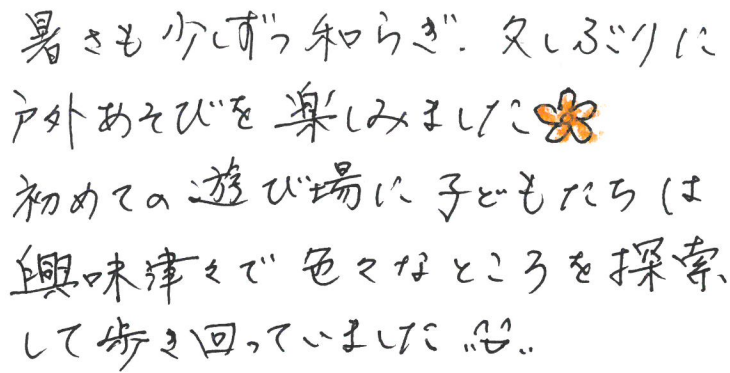 暑さも少しずつ和らぎ、久しぶりに
戸外あそびを楽しみました
初めての遊び場に子どもたちは
興味津々で色々なところを探索
して歩き回っていました